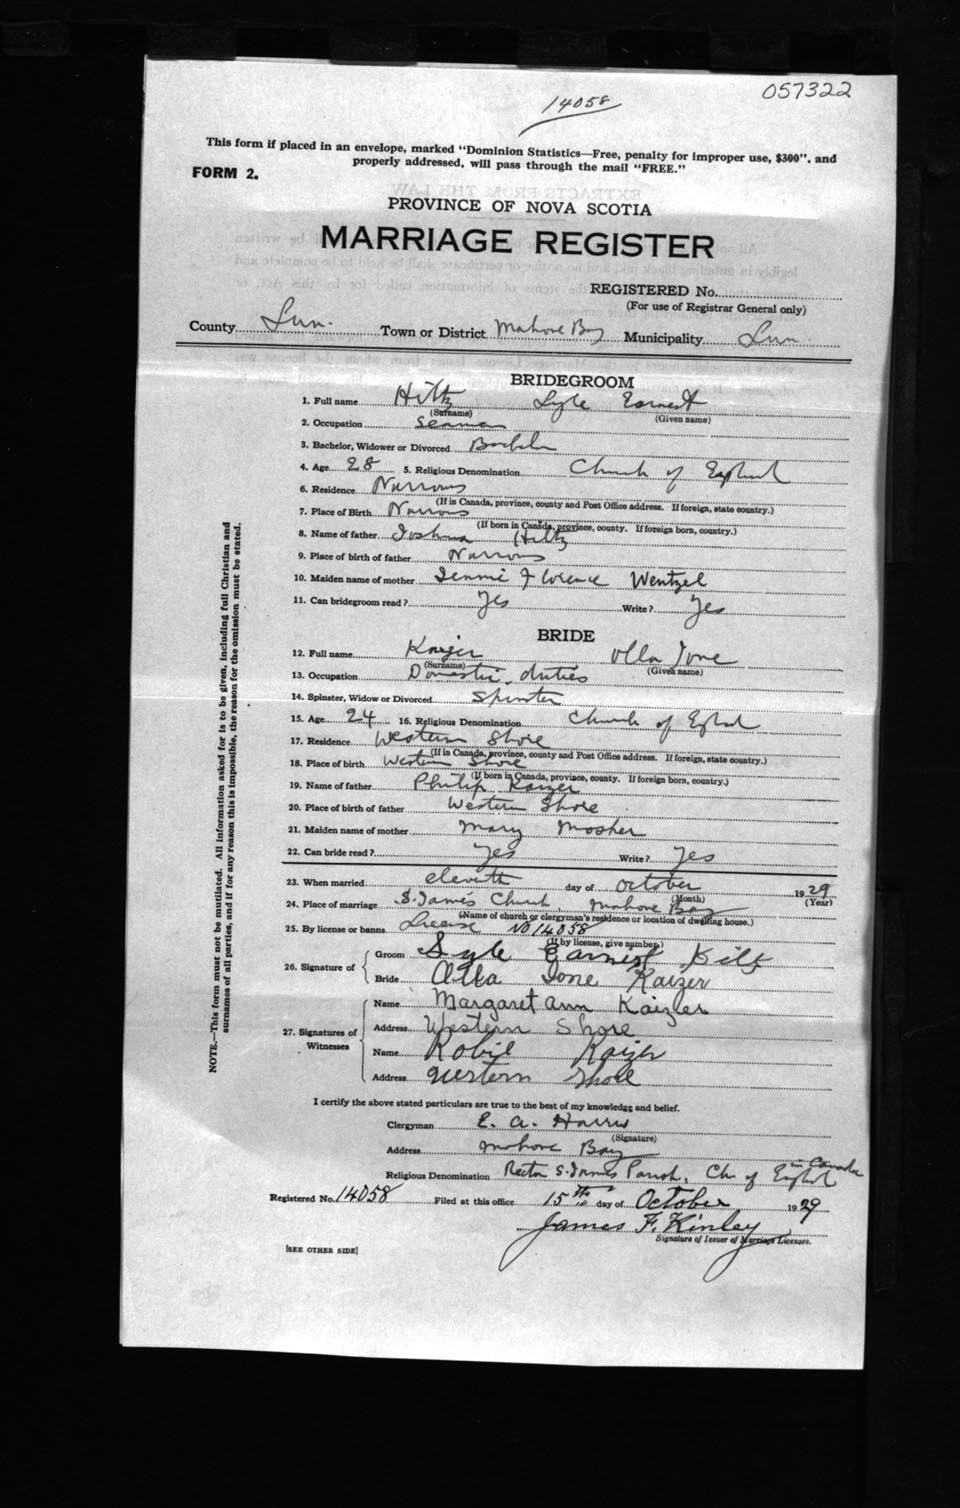 057322
14058
This form if placed in an envelope, marked "Dominion Statistics—Free, penalty for improper use, $300", and
properly addressed, will pass through the mail "FREE."
FORM 2.
PROVINCE OF NOVA SCOTIA
MARRIAGE REGISTER
REGISTERED No.
(For use of Registrar General only)
County Lun. Town or District Mahone Bay Municipality Lun.
BRIDEGROOM
1. Full name Hiltz Lyle Earnest
(Surname) (Given name)
2. Occupation Seaman
3. Bachelor, Widower or Divorced Bachelor
4. Age 28 5. Religious Denomination Church of England
6. Residence Narrows
(If in Canada, province, county and Post Office address. If foreign, state country.)
7. Place of Birth Narrows
(If born in Canada, province, county. If foreign born, country.)
8. Name of father Joshua Hiltz
9. Place of birth of father Narrows
10. Maiden name of mother Jennie Florence Wentzel
11. Can bridegroom read? Yes Write? Yes
BRIDE
12. Full name Kaizer Olla Ione
(Surname) (Given name)
13. Occupation Domestic duties
14. Spinster, Widow or Divorced Spinster
15. Age 24 16. Religious Denomination Church of Engd
17. Residence Western Shore
(If in Canada, province, county and Post Office address. If foreign, state country.)
18. Place of birth Western Shore
(If born in Canada, province, county. If foreign born, country.)
19. Name of father Philip Kaizer
20. Place of birth of father Western Shore
21. Maiden name of mother Mary Mosher
22. Can bride read? Yes Write? Yes
23. When married eleventh day of October 1929
(Month) (Year)
24. Place of marriage S. James Church Mahone Bay
(Name of church or clergyman's residence or location of dwelling house.)
25. By license or banns License No 14058
(If by license, give number)
26. Signature of
Groom Lyle Earnest Hiltz
Bride Olla Ione Kaizer
27. Signatures of Witnesses
Name Margaret Ann Kaizer
Address Western Shore
Name Robie Kaizer
Address Western Shore
I certify the above stated particulars are true to the best of my knowledge and belief.
Clergyman E. A. Harris
(Signature)
Address Mahone Bay
Religious Denomination Rector S. James Parish, Ch. of England in Canada
Registered No. 14058 Filed at this office 15th day of October 1929
James F. Kinley
Signature of Issuer of Marriage Licenses.
[SEE OTHER SIDE]
NOTE.—This form must not be mutilated. All information asked for is to be given, including full Christian and
surnames of all parties, and if for any reason this is impossible, the reason for the omission must be stated.